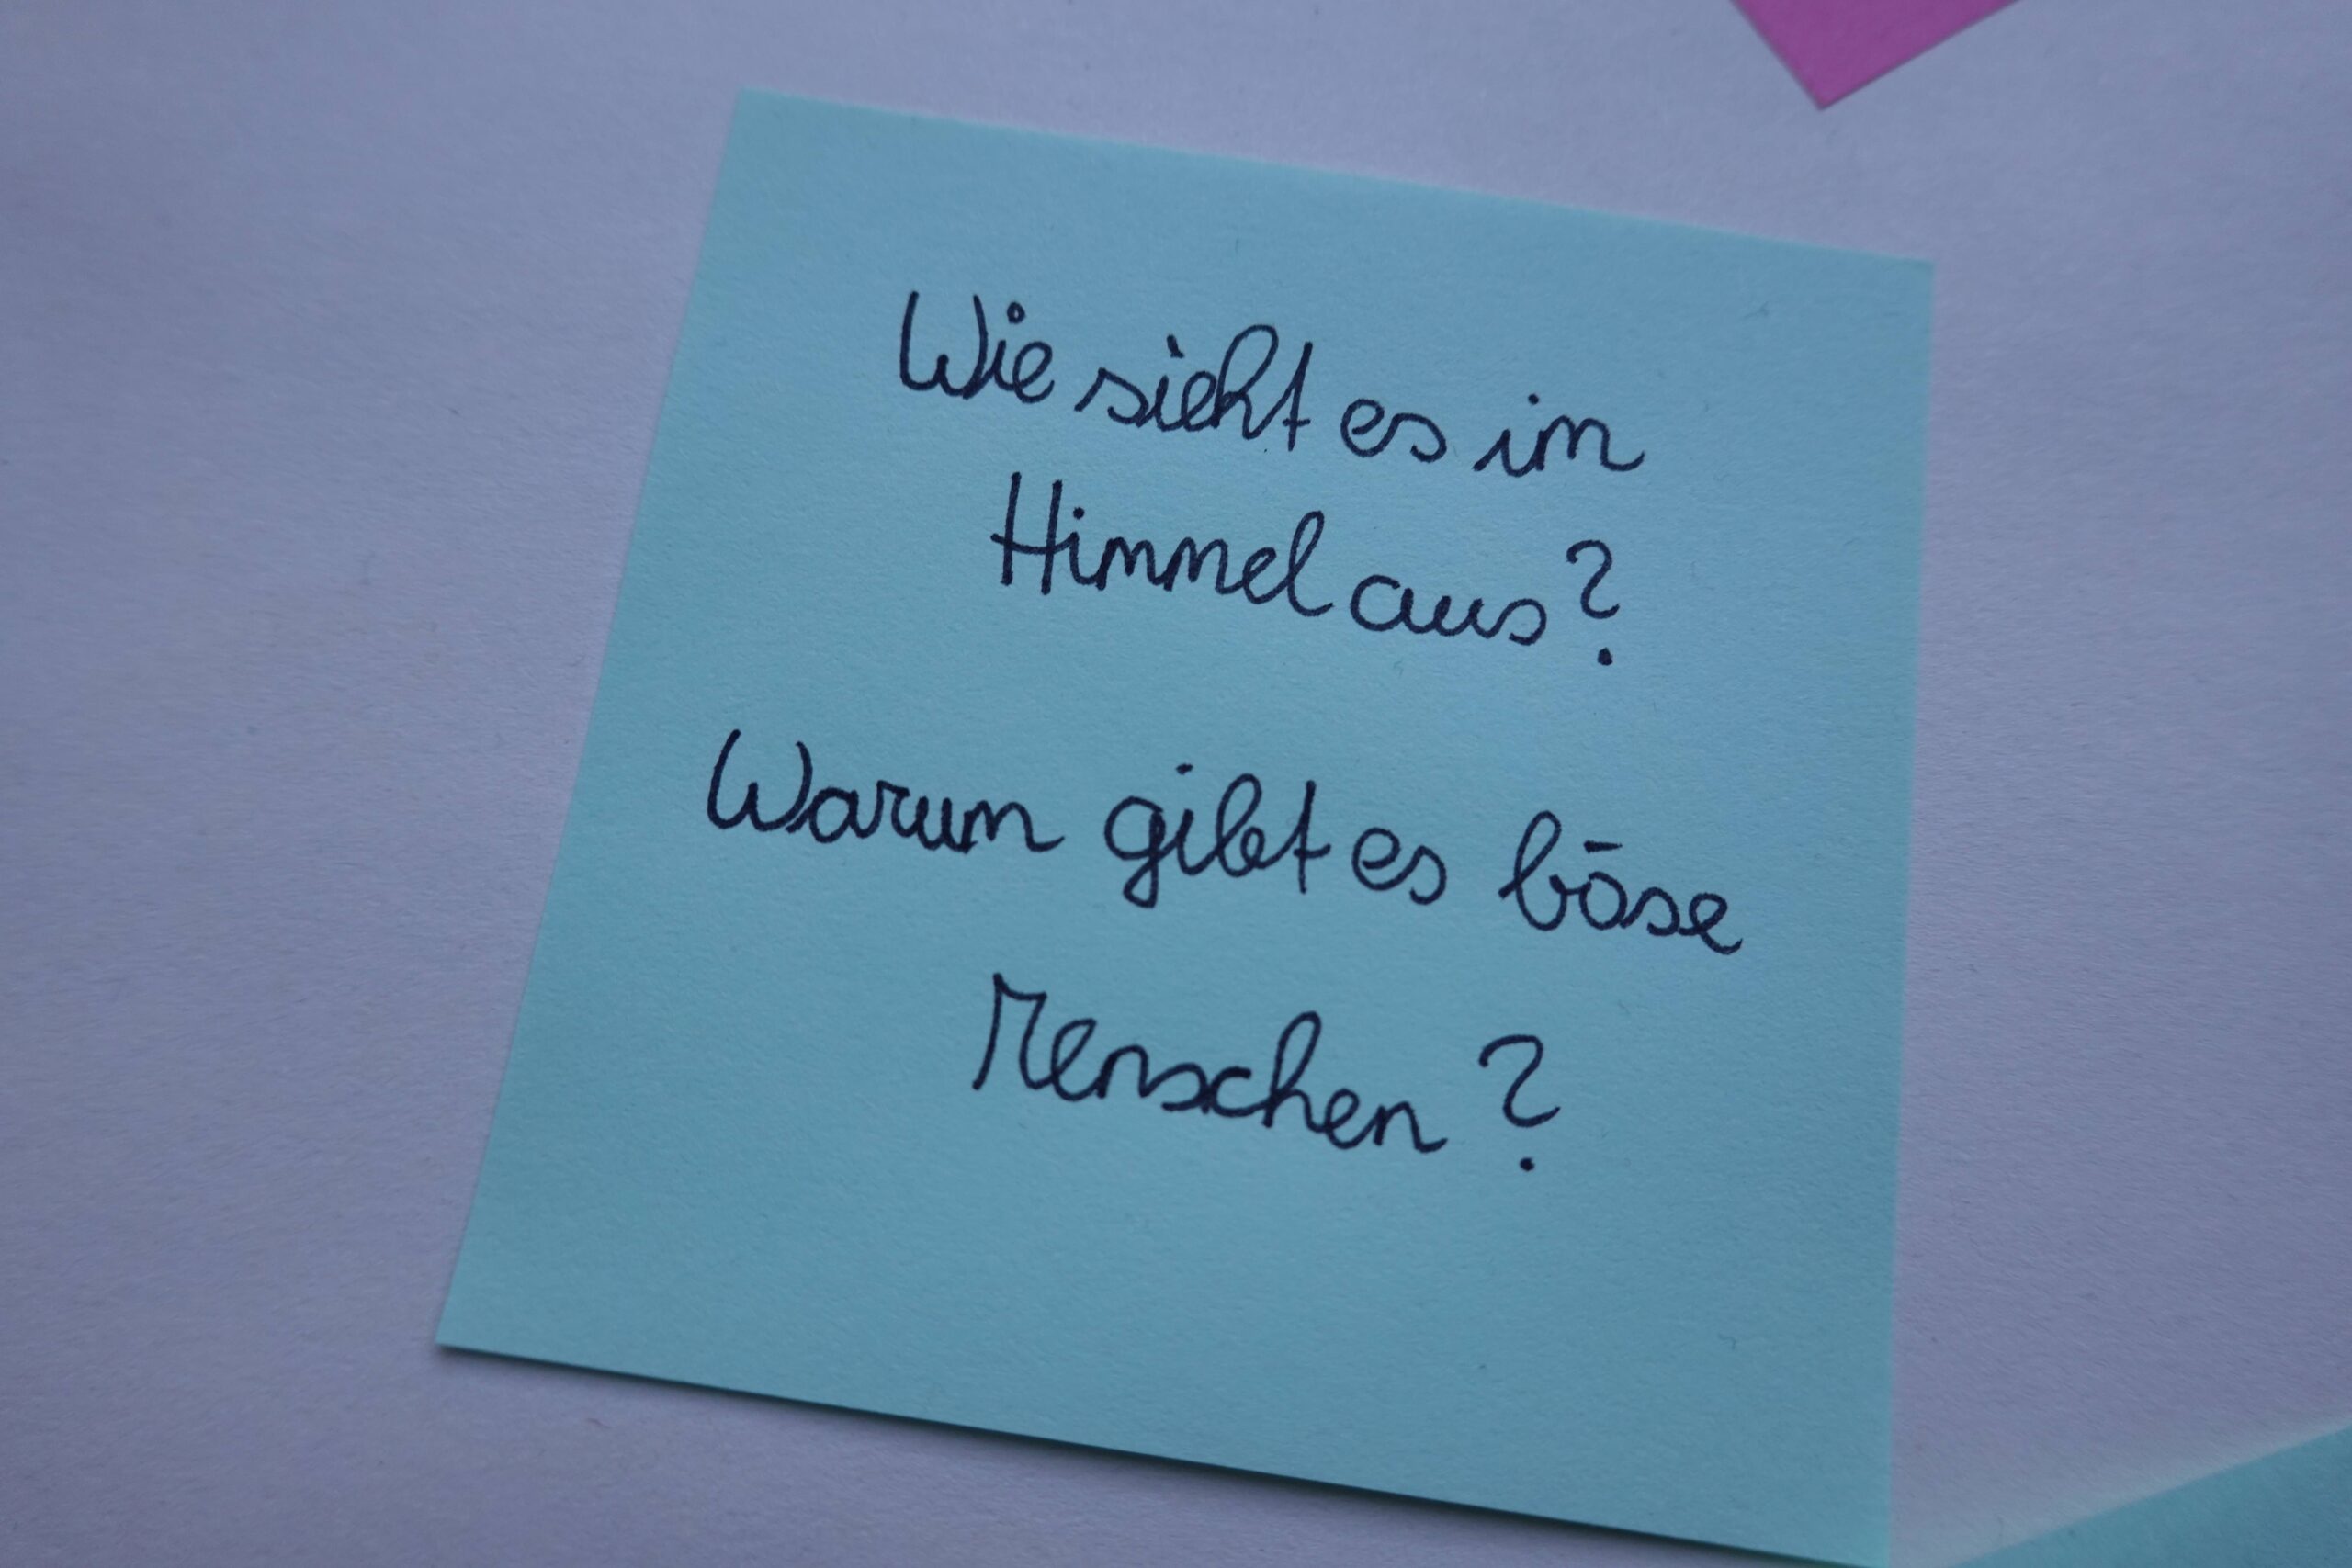 Wie sieht es im
Himmel aus?
Warum gibt es böse
Menschen?